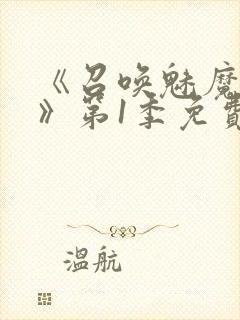 《召唤魅魔
》第1季免费
温航